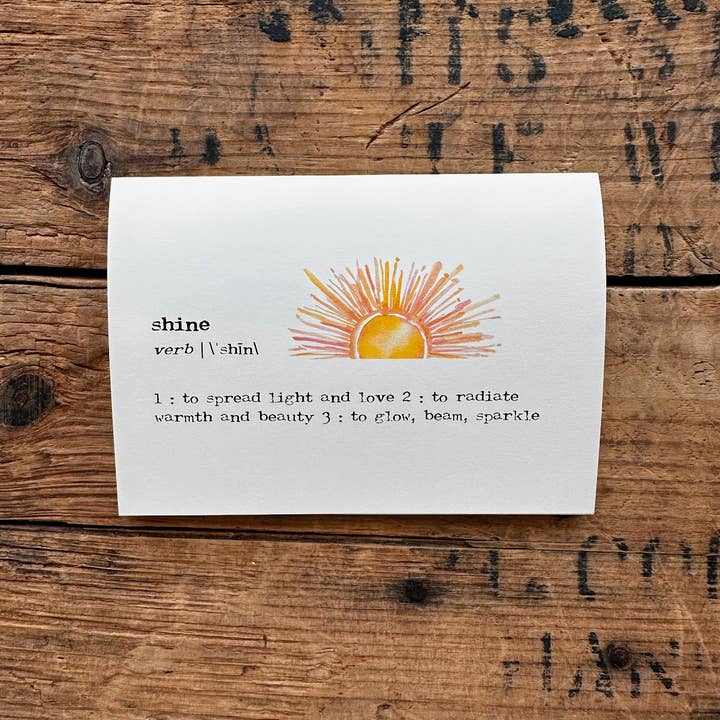 shine
verb | \'shīn\
1 : to spread light and love 2 : to radiate
warmth and beauty 3 : to glow, beam, sparkle